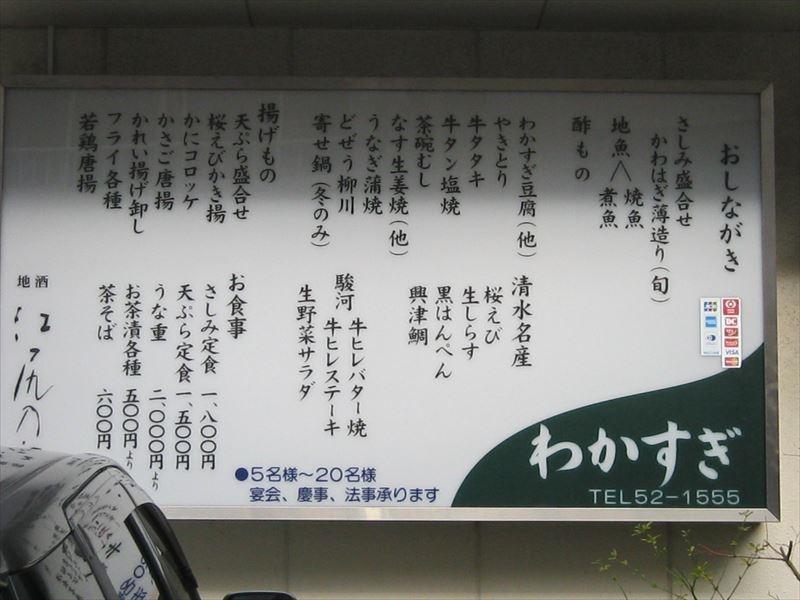 おしながき
さしみ盛合せ
かわはぎ薄造り(旬)
地魚
焼魚
煮魚
酢もの
わかすぎ豆腐(他)
やきとり
牛タタキ
牛タン塩焼
茶碗むし
なす生姜焼(他)
うなぎ蒲焼
どぜう柳川
寄せ鍋(冬のみ)
揚げもの
天ぷら盛合せ
桜えびかき揚
かにコロッケ
かさご唐揚
かれい揚げ卸し
フライ各種
若鶏唐揚
清水名産
桜えび
生しらす
黒はんぺん
興津鯛
駿河
牛ヒレバター焼
牛ヒレステーキ
生野菜サラダ
お食事
さしみ定食 一、八〇〇円
天ぷら定食 一、五〇〇円
うな重 二、〇〇〇円より
お茶漬各種 五〇〇円より
茶そば 六〇〇円
地酒
●5名様～20名様
宴会、慶事、法事承ります
わかすぎ
TEL52-1555
JCB
DC
VISA